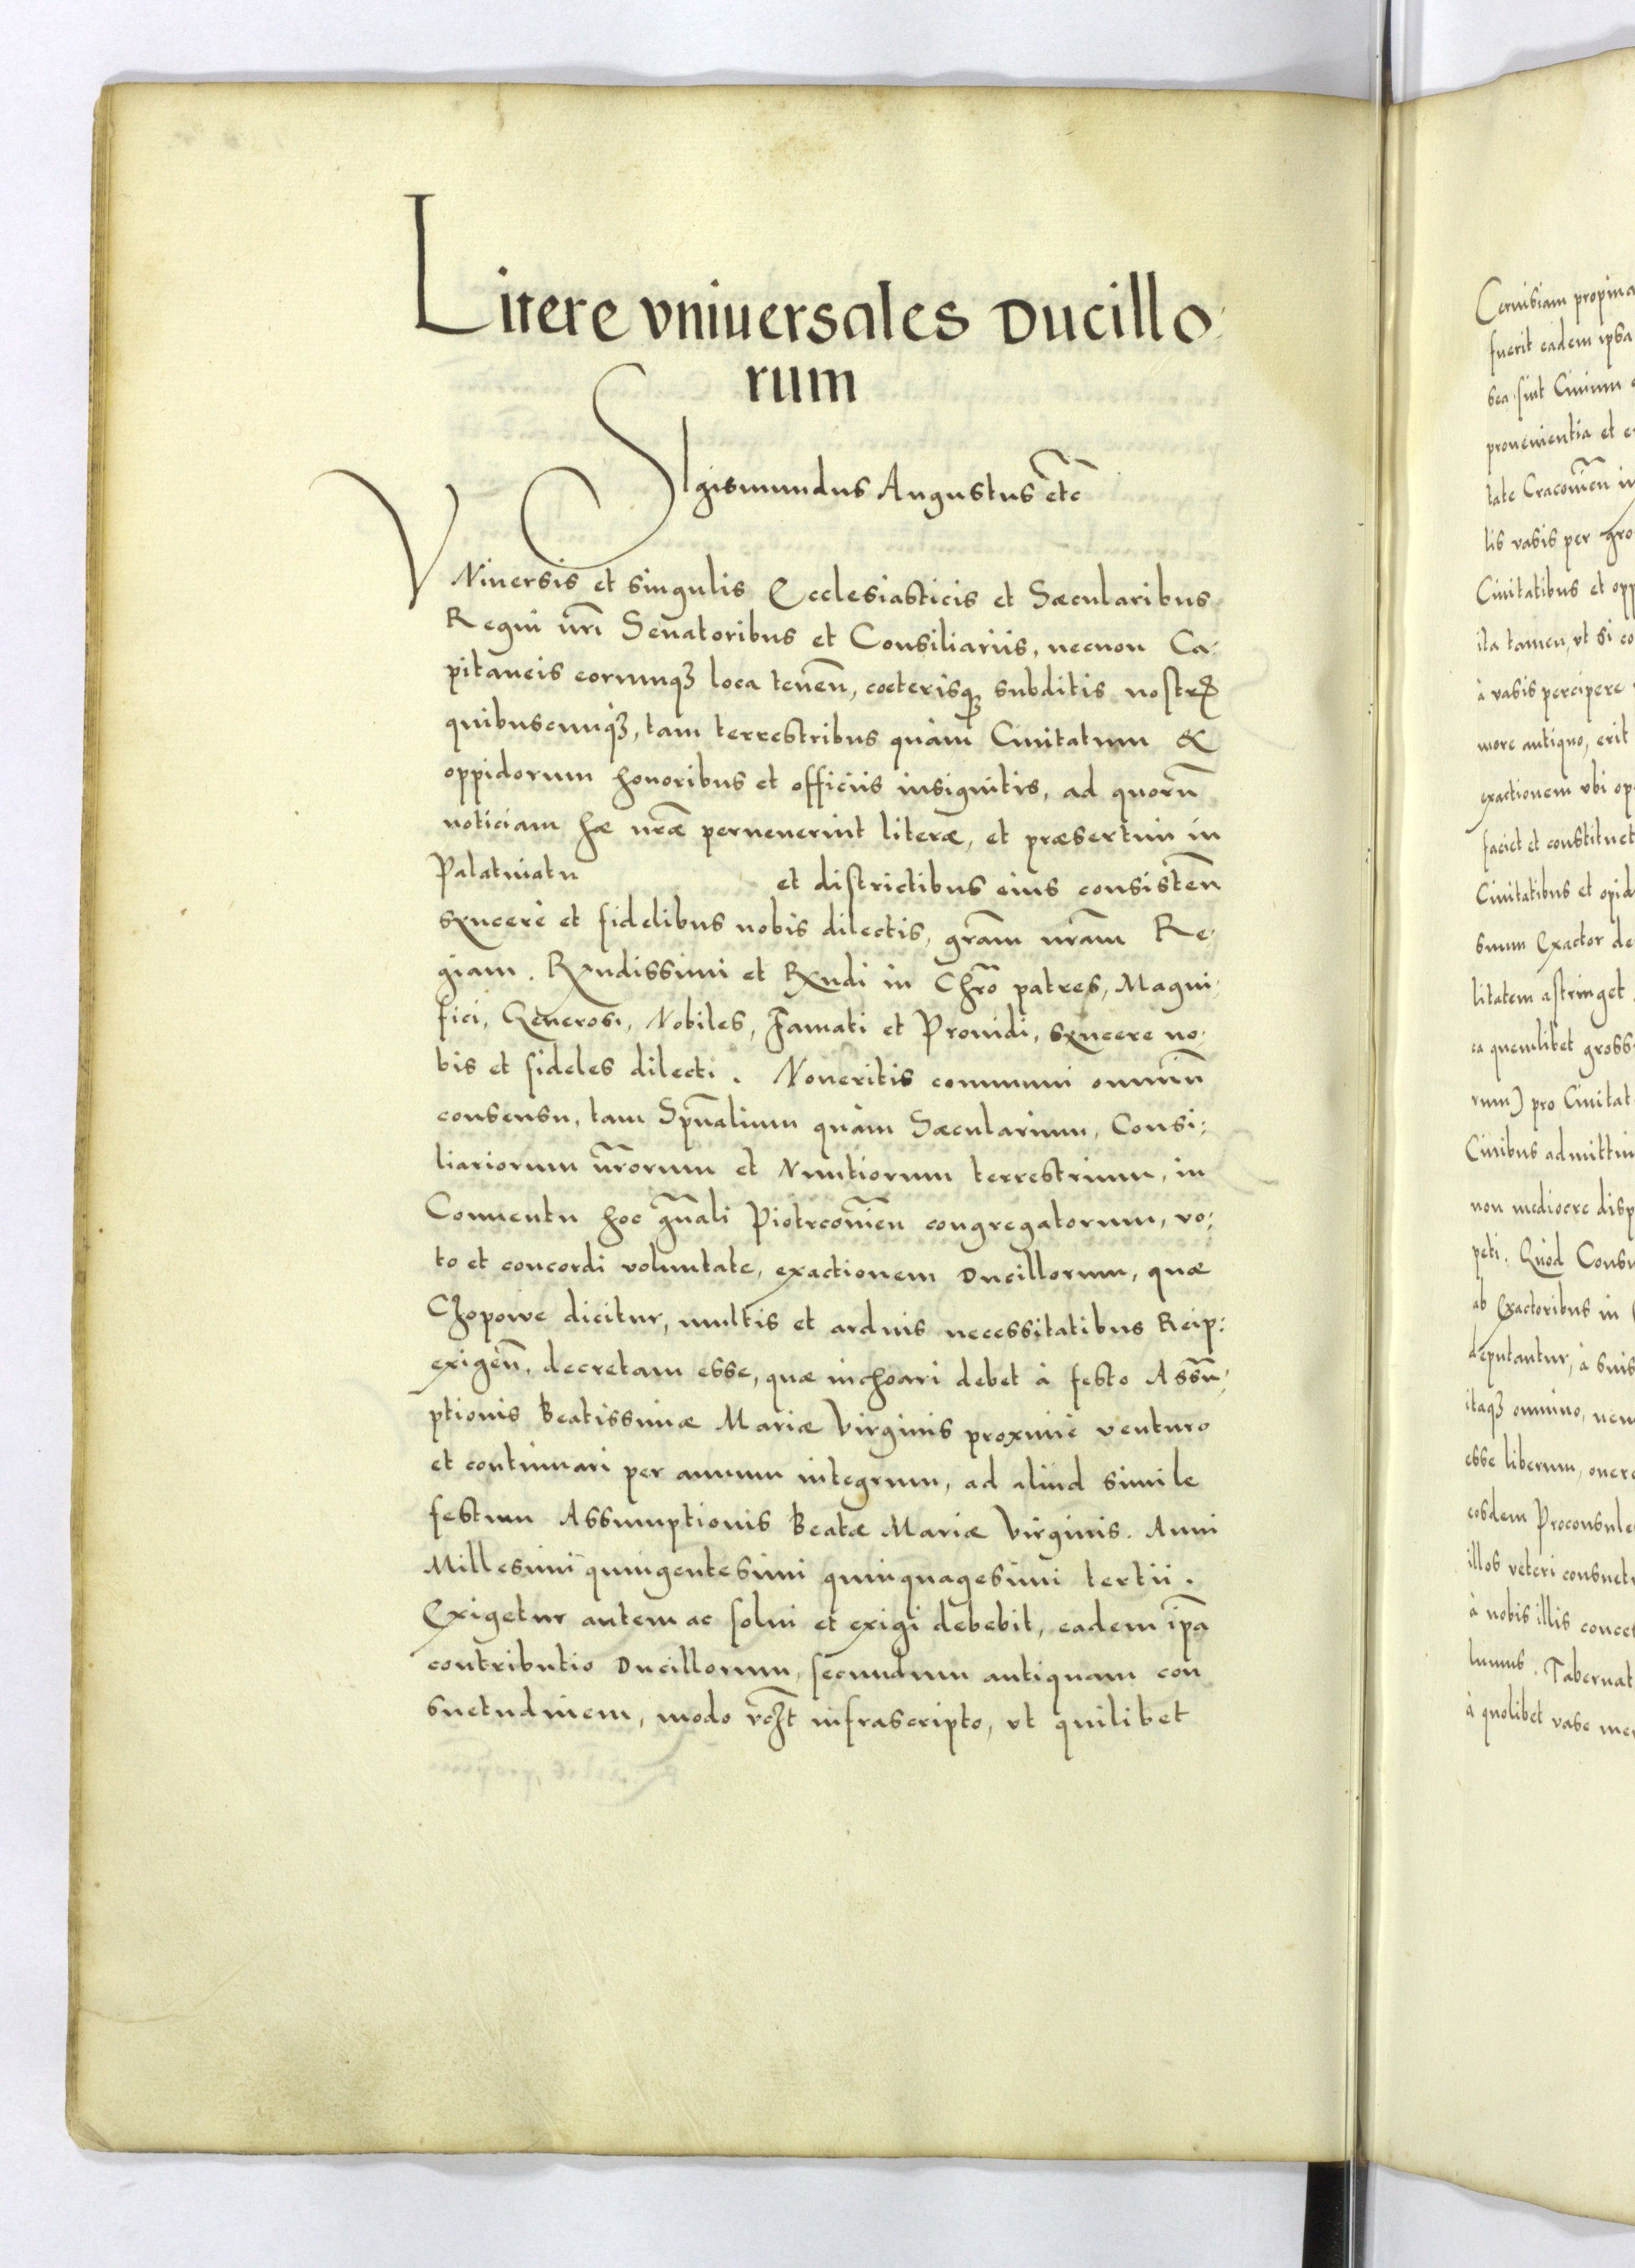 Litere vniuersales Ducillo:
rum
SIgismundus Augustus etc̄
VNiuersis et singulis Ecclesiasticis et Sæcularibus
Regni nr̄i Senatoribus et Consiliariis, necnon Ca:
pitaneis eorumq₃ loca tenen̄, cœterisq₃ subditis nostrꝭ
quibuscunq₃, tam terrestribus quàm Ciuitatum &
oppidorum honoribus et officiis insignitis, ad quorū
noticiam hæ nr̄æ peruenerint literæ, et præsertim in
Palatinatu et districtibus eius consisten̄
syncerè et fidelibus nobis dilectis, gr̄am nr̄am Re:
giam. Rx̄ndissimi et Rx̄ndi in Chr̄o patres, Magni:
fici, Generosi, Nobiles, Famati et Prouidi, syncere no:
bis et fideles dilecti. Noueritis communi omniū
consensu, tam Spūalium quàm Sæcularium, Consi:
liariorum nr̄orum et Nuntiorum terrestrium, in
Conuentu hoc gn̄ali Piotrcouien̄ congregatorum, vo:
to et concordi voluntate, exactionem Ducillorum, quæ
Chopowe dicitur, multis et arduis necessitatibus Reip:
exigen̄, decretam esse, quæ inchoari debet à festo Assū:
ptionis Beatissimæ Mariæ Virginis proximè venturo
et continuari per annum integrum, ad aliud simile
festum Assumptionis Beatæ Mariæ Virginis. Anni
Millesimi quingentesimi quinquagesimi tertii.
Exigetur autem ac solui et exigi debebit, eadem ip̄a
contributio Ducillorum, secundum antiquam con
suetudinem, modo infrascripto, vt quilibet
Ceruisiam propina
fuerit eadem ipsa
sea sint Ciuium
prouenientia et e
tate Cracouien̄ in
lis vasis per gro
Ciuitatibus et opp
ita tamen, vt si co
à vasis percipere
more antiquo, erit
exactionem vbi op
faciet et constituet
Ciuitatibus et opid
suum Exactor de
litatem astringet
ca quemlibet gross
rum) pro Ciuitat
Ciuibus admittin
non mediocre disp
peti. Quod Consu
ab Exactoribus in
deputantur, à suis
itaq₃ omnino, nem
esse liberum, onere
eosdem Proconsule
illos veteri consuet
à nobis illis conces
lumus. Tabernat
à quolibet vase me